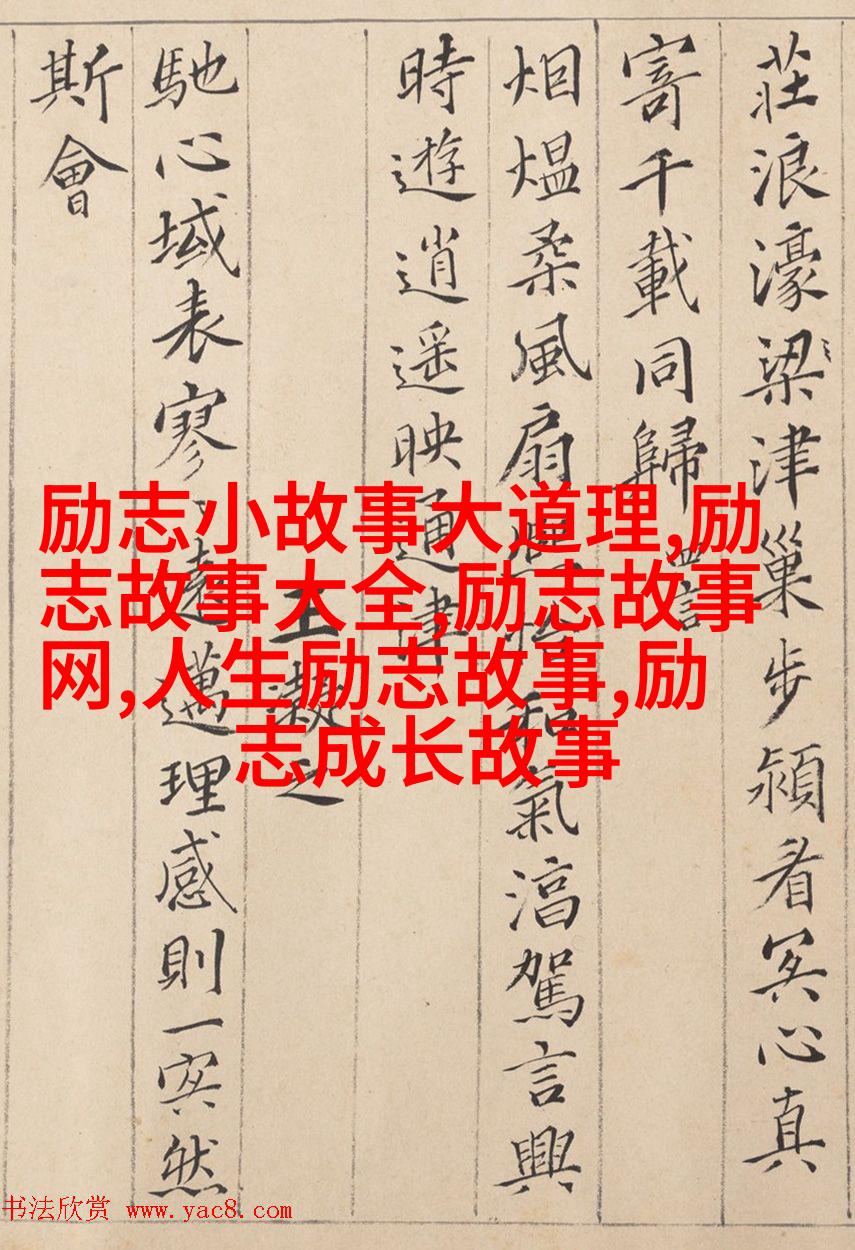 莊浪濠梁津巢步潁湄冥心真
寄千載同歸 四言
烟煴柔風扇 和氣淳駕言興
時遊逍遥映通津
王凝之
馳心域表寥〻遠邁理感則一冥然
斯會
励志小故事大道理,励
志故事大全,励志故事
网,人生励志故事,励
志成长故事
书法欣赏 www.yac8.com